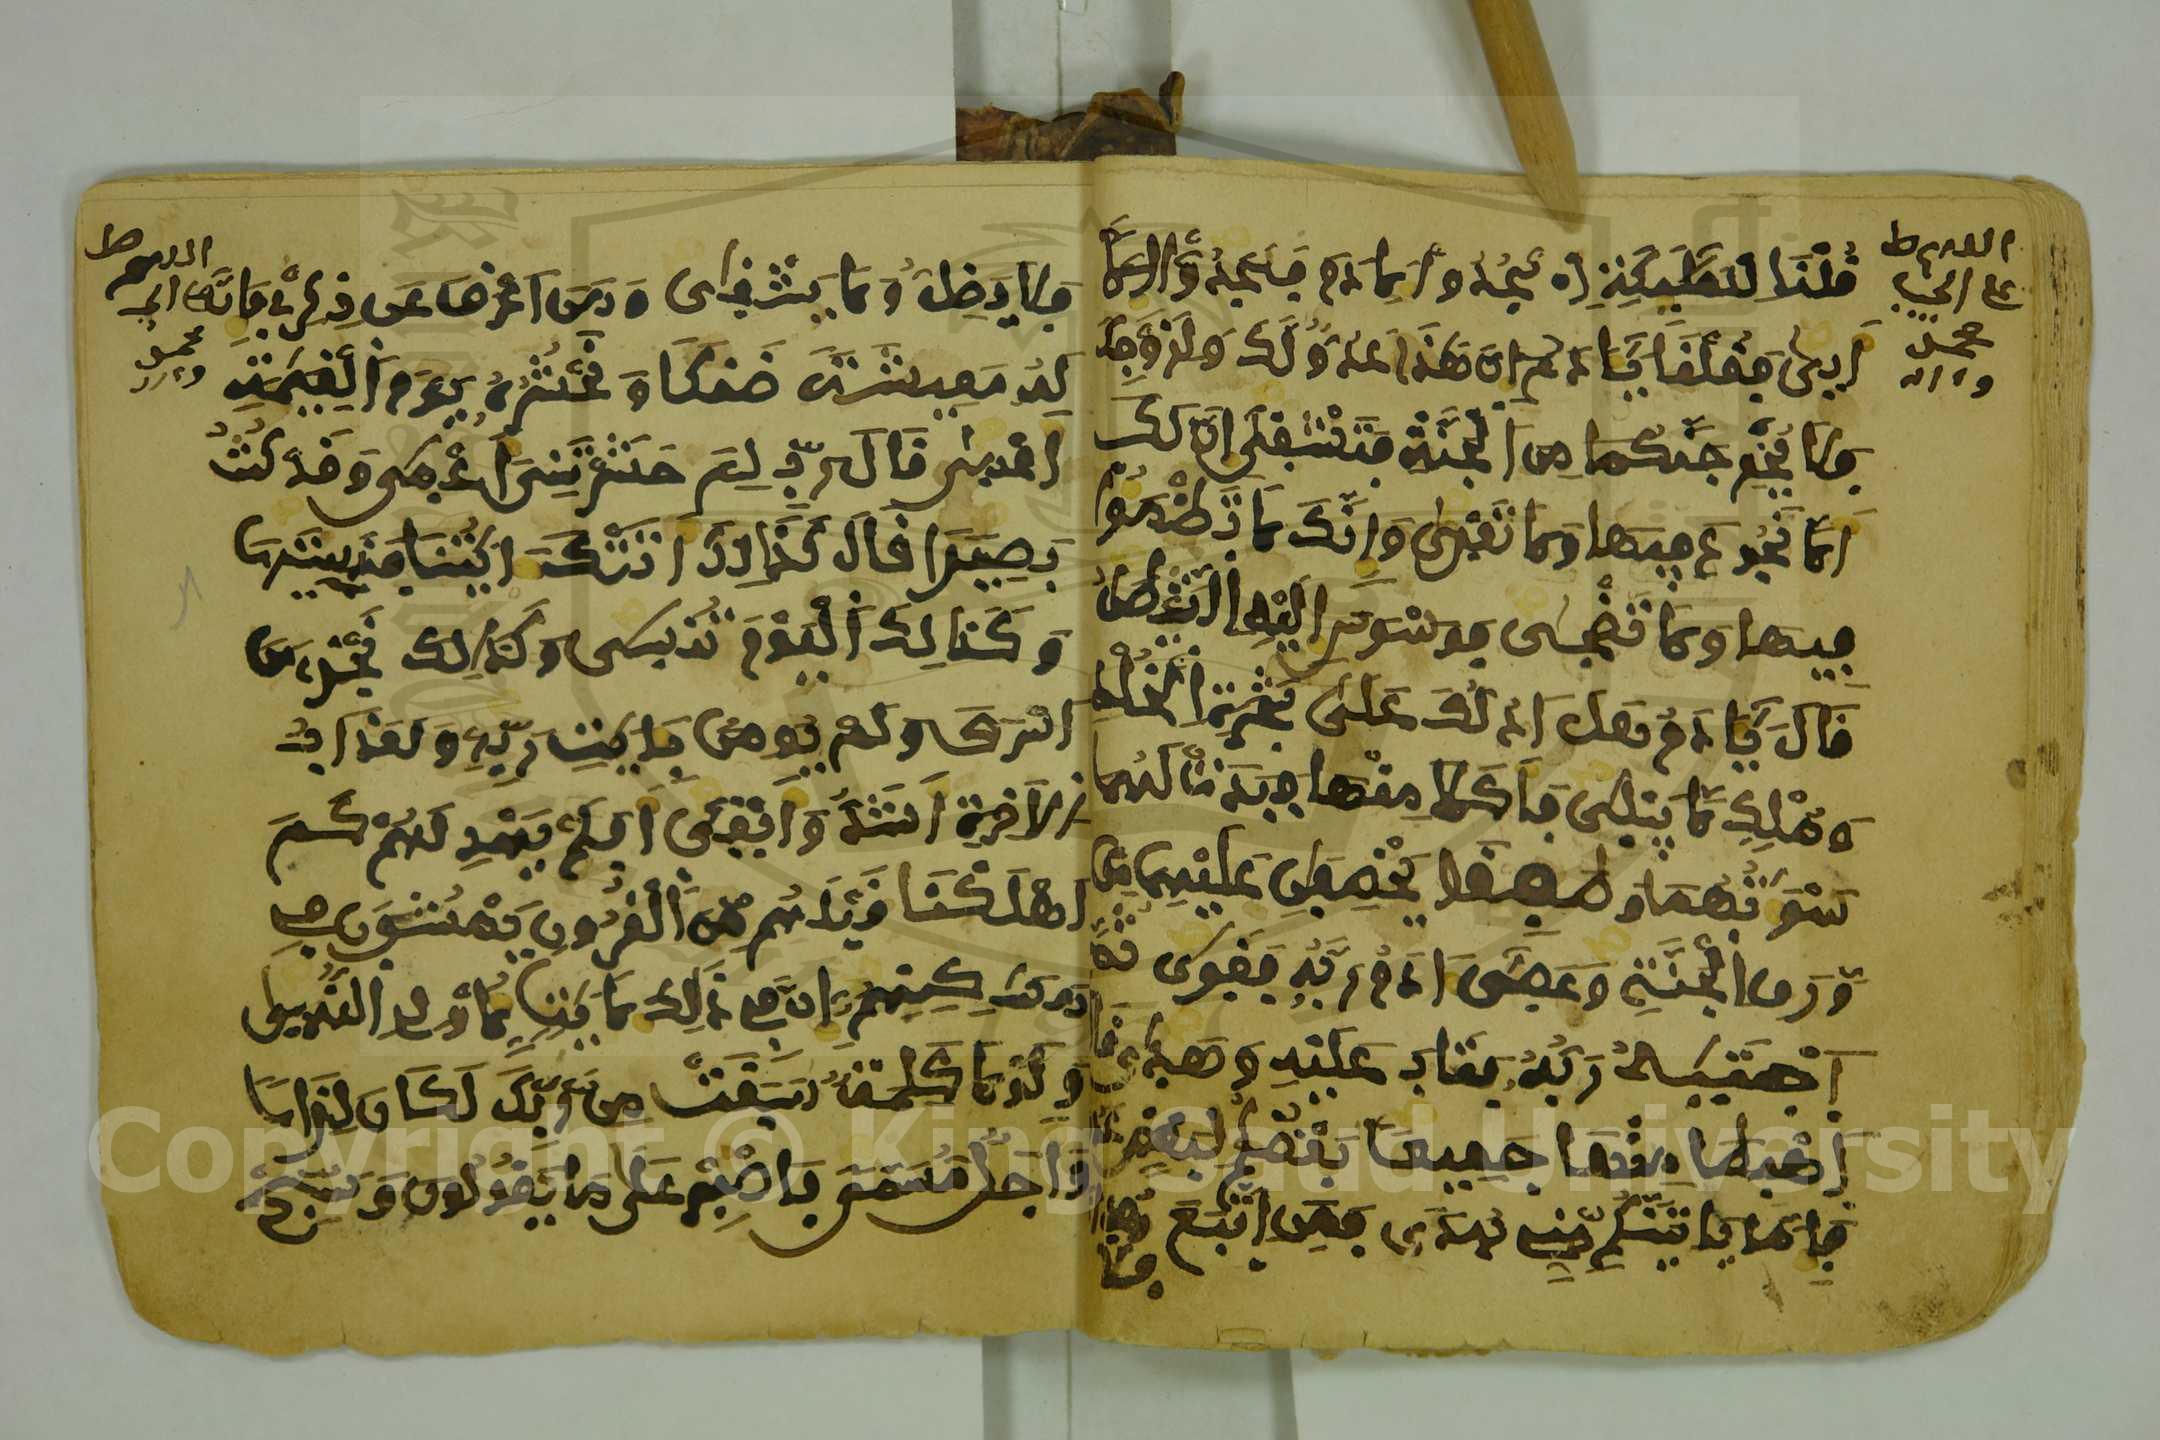 اللهم صل
على الحبيب
محمد
وءاله
قلنا للمليكة اسجدوا لادم فسجدوا الا
ابلى فقلنا يادم ان هذا عدو لك ولزوجك
فلا يخرجنكما من الجنة فتشقى ان لك
الا تجوع فيها ولا تعرى وانك لا تظمؤا
فيها ولا تضحى فوسوس اليه الشيطن
قال يادم هل ادلك على شجرة الخلد
وملك لا يبلى فاكلا منها فبدت لهما
سوتهما وطفقا يخصفن عليهما من
ورق الجنة وعصى ادم ربه فغوى ثم
اجتبيه ربه فتاب عليه وهدى قا
اهبطا منها جميعا بعضكم لبعض عد
فاما ياتينكم مني هدى فمن اتبع هدا
فلا
اللهم صل
محمد
وءاله
فلا يضل ولا يشقى ومن اعرض عن ذكرى فانه
له معيشة ضنكا ونحشره يوم القيمة
اعمى قال رب لم حشرتنى اعمى وقد كنت
بصيرا قال كذلك اتتك ايتنا فنسيتها
وكذلك اليوم تنسى وكذلك نجزى من
اسرف ولم يومن بايت ربه ولعذاب
الاخرة اشد وابقى افلم يهد لهم كم
اهلكنا قبلهم من القرون يمشون في
مسكنهم ان في ذلك لايت لاولى النهى
ولولا كلمة سبقت من ربك لكان لزاما
واجل مسمى فاصبر على ما يقولون وسبح
Copyright © King Saud University